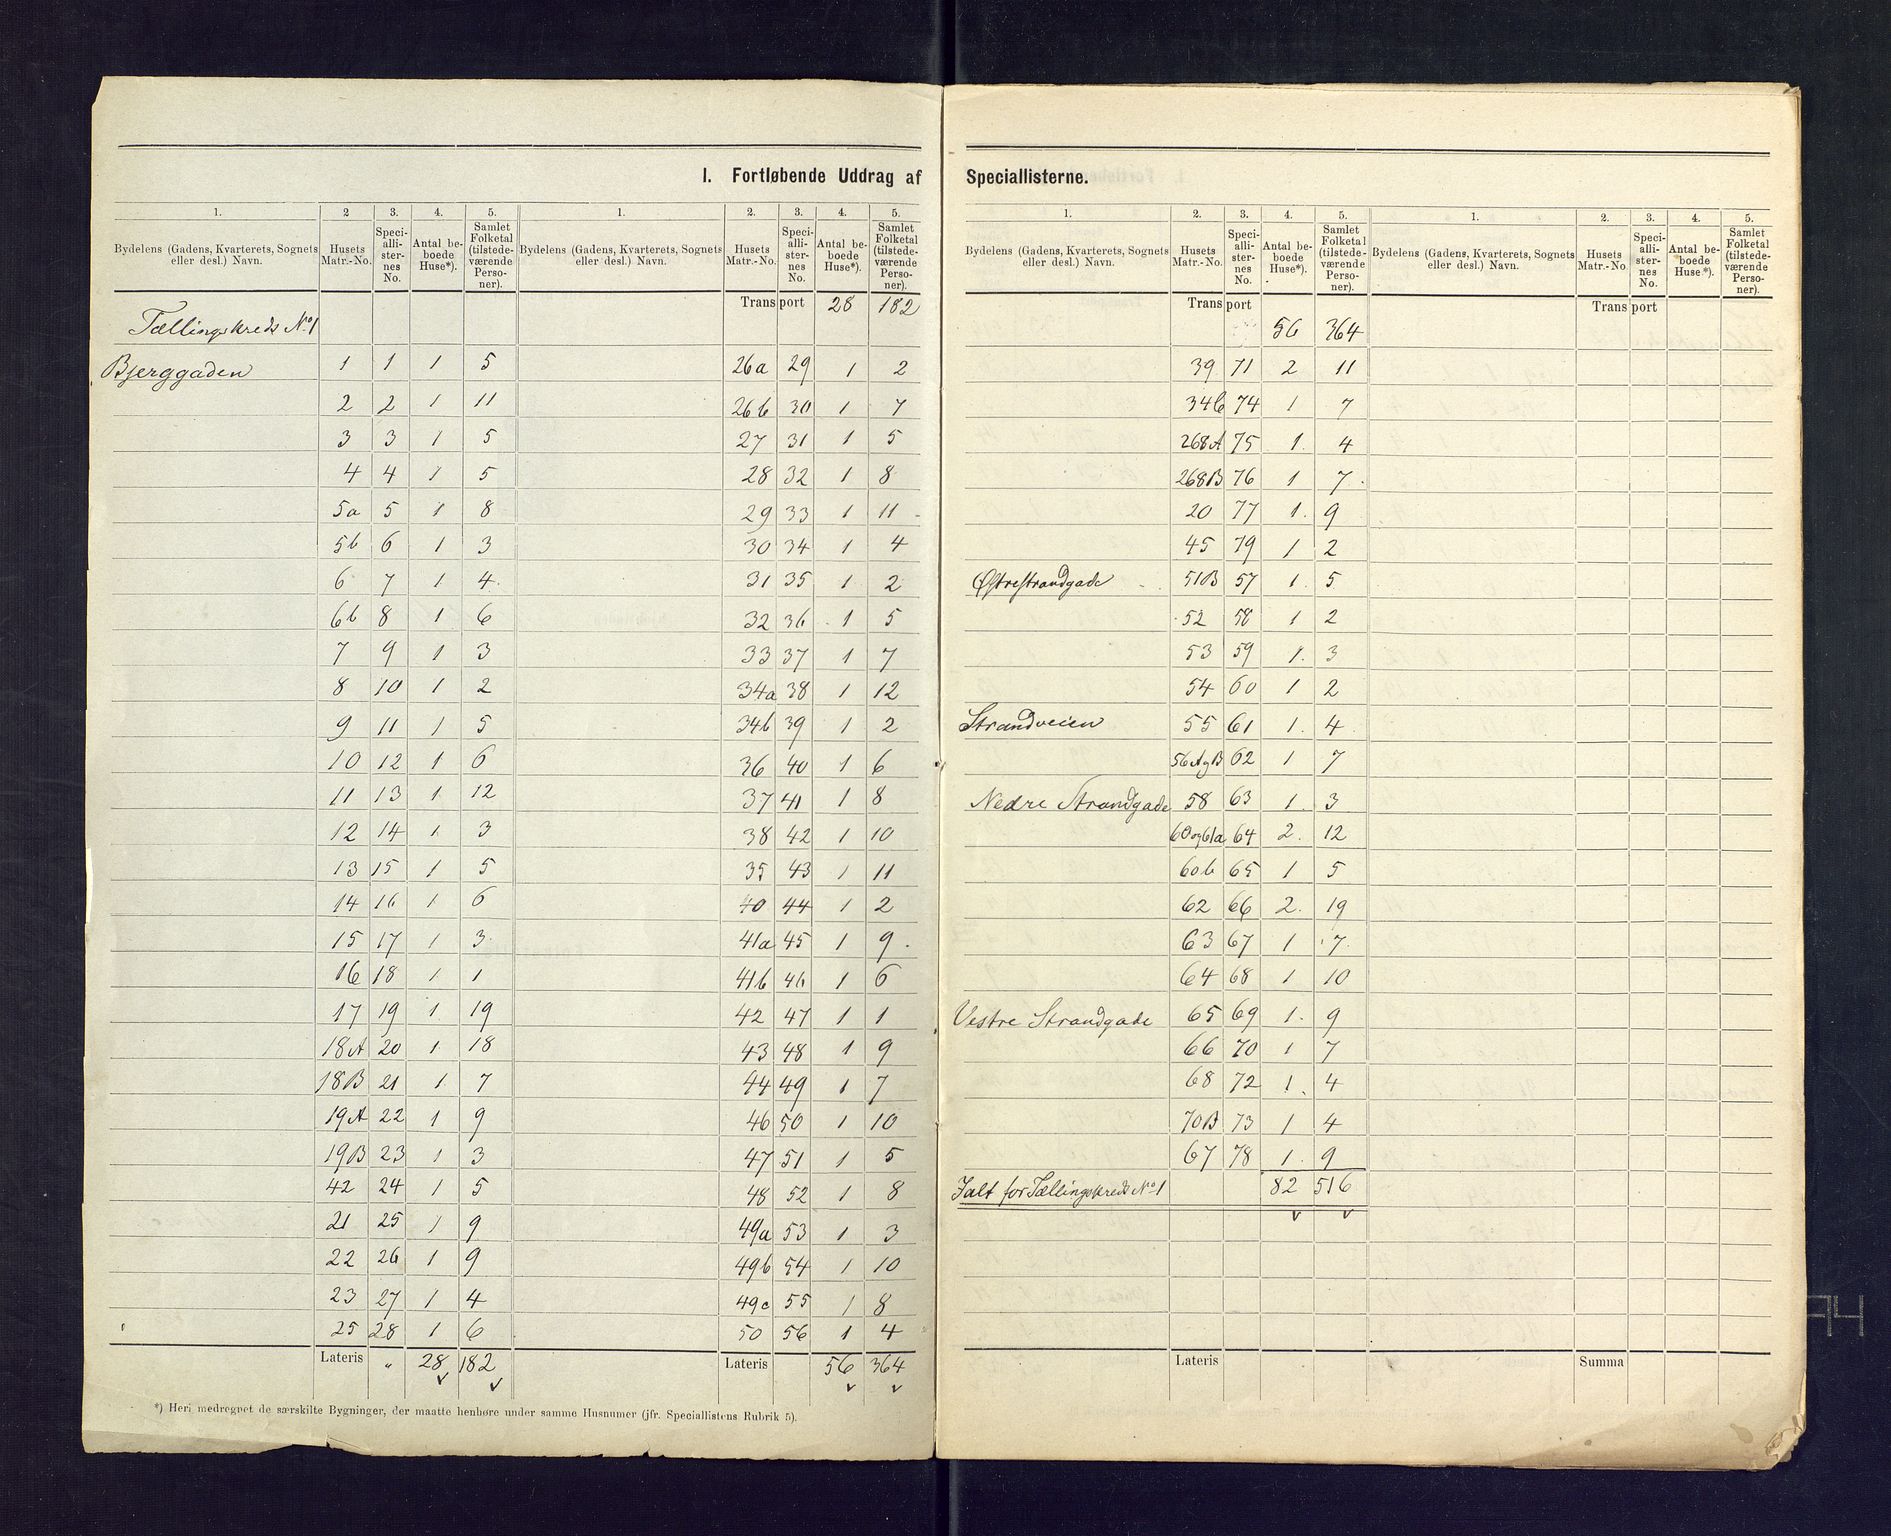 I. Fortløbende Uddrag af Speciallisterne.
1. 2 3. 4. 5. 1. 2. 3. 4. 5.
Bydelens (Gadens, Kvarterets, Sognets eller desl.) Navn. Husets Matr.-No. Speciallisternes No. Antal beboede Huse*). Samlet Folketal (tilstedeværende Personer). Bydelens (Gadens, Kvarterets, Sognets eller desl.) Navn. Husets Matr.-No. Speciallisternes No. Antal beboede Huse*). Samlet Folketal (tilstedeværende Personer).
Tællingskreds No 1
Bjerggaden 1 1 1 5
2 2 1 11
3 3 1 5
4 4 1 5
5a 5 1 8
5b 6 1 3
6 7 1 4
6b 8 1 6
7 9 1 3
8 10 1 2
9 11 1 5
10 12 1 6
11 13 1 12
12 14 1 3
13 15 1 5
14 16 1 6
15 17 1 3
16 18 1 1
17 19 1 19
18A 20 1 18
18B 21 1 7
19A 22 1 9
19B 23 1 3
42 24 1 5
21 25 1 9
22 26 1 9
23 27 1 4
25 28 1 6
Lateris „ 28 182
Transport 28 182
26a 29 1 2
26b 30 1 7
27 31 1 5
28 32 1 8
29 33 1 11
30 34 1 4
31 35 1 2
32 36 1 5
33 37 1 7
34a 38 1 12
34b 39 1 2
36 40 1 6
37 41 1 8
38 42 1 10
35 43 1 11
40 44 1 2
41a 45 1 9
41b 46 1 6
42 47 1 1
43 48 1 9
44 49 1 7
46 50 1 10
47 51 1 5
48 52 1 8
49a 53 1 3
49b 54 1 10
49c 55 1 8
50 56 1 4
Lateris 56 364
*) Heri medregnet de særskilte Bygninger, der maatte henhøre under samme Husnumer (jfr. Speciallistens Rubrik 5).
1. 2. 3. 4. 5. 1. 2. 3. 4. 5.
Bydelens (Gadens, Kvarterets, Sognets eller desl.) Navn. Husets Matr.-No. Speciallisternes No. Antal beboede Huse*). Samlet Folketal (tilstedeværende Personer). Bydelens (Gadens, Kvarterets, Sognets eller desl.) Navn. Husets Matr.-No. Speciallisternes No. Antal beboede Huse*). Samlet Folketal (tilstedeværende Personer).
Transport 56 364
39 71 2 11
34b 74 1 7
268A 75 1 4
268B 76 1 7
20 77 1 9
45 79 1 2
Østrestrandgade 51B 57 1 5
52 58 1 2
53 59 1 3
54 60 1 2
Strandveien 55 61 1 4
56AgB 62 1 7
Nedre Strandgade 58 63 1 3
60og61a 64 2 12
60b 65 1 5
62 66 2 19
63 67 1 7
64 68 1 10
Vestre Strandgade 65 69 1 9
66 70 1 7
68 72 1 4
70B 73 1 4
67 78 1 9
Ialt for Tællingskreds No 1 82 516
Lateris
Transport
Summa